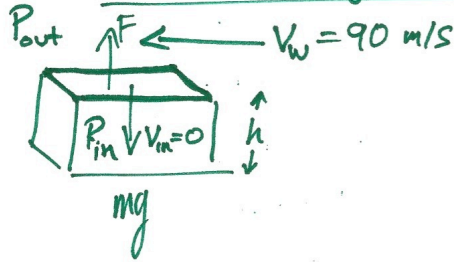 P_out F V_w = 90 m/s
P_in V_in = 0 h
mg